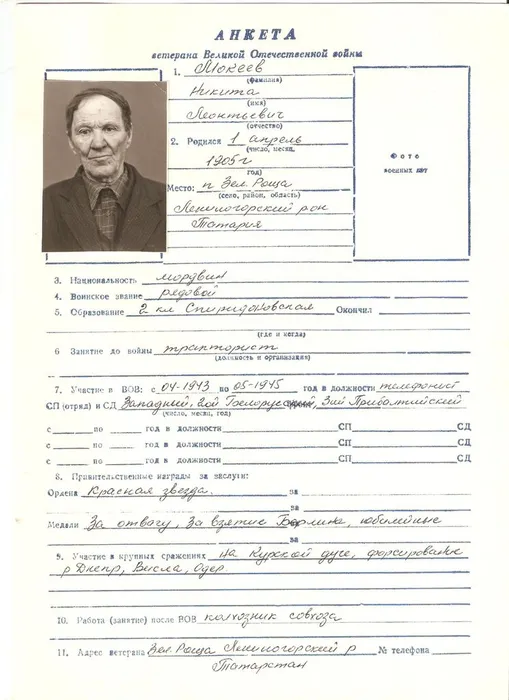 АНКЕТА
ветерана Великой Отечественной войны
1. Мокеев
(фамилия)
Никита
(имя)
Леонтьевич
(отчество)
2. Родился 1 апрель
(число, месяц,
1905 г
год)
Место: п Зел. Роща
(село, район, область)
Лениногорский рон
Татария
Фото
военных лет
3. Национальность мордвин
4. Воинское звание рядовой
5. Образование 2 кл Спиридоновская Окончил
(где и когда)
6 Занятие до войны тракторист
(должность и организация)
7. Участие в ВОВ: с 04-1943 по 05-1945 год в должности телефонист
СП (отряд) и СД Западный, 2ой Белорусский, 3ий Прибалтийский
(число, месяц, год)
с по год в должности СП СД
с по год в должности СП СД
с по год в должности СП СД
8. Правительственные награды за заслуги:
Ордена Красная звезда. за
за
Медали За отвагу, За взятие Берлина, юбилейные
за
9. Участие в крупных сражениях на Курской дуге, форсирование
р Днепр, Висла, Одер.
10. Работа (занятие) после ВОВ колхозник совхоза
11. Адрес ветерана Зел. Роща Лениногорский р № телефона
Татарстан